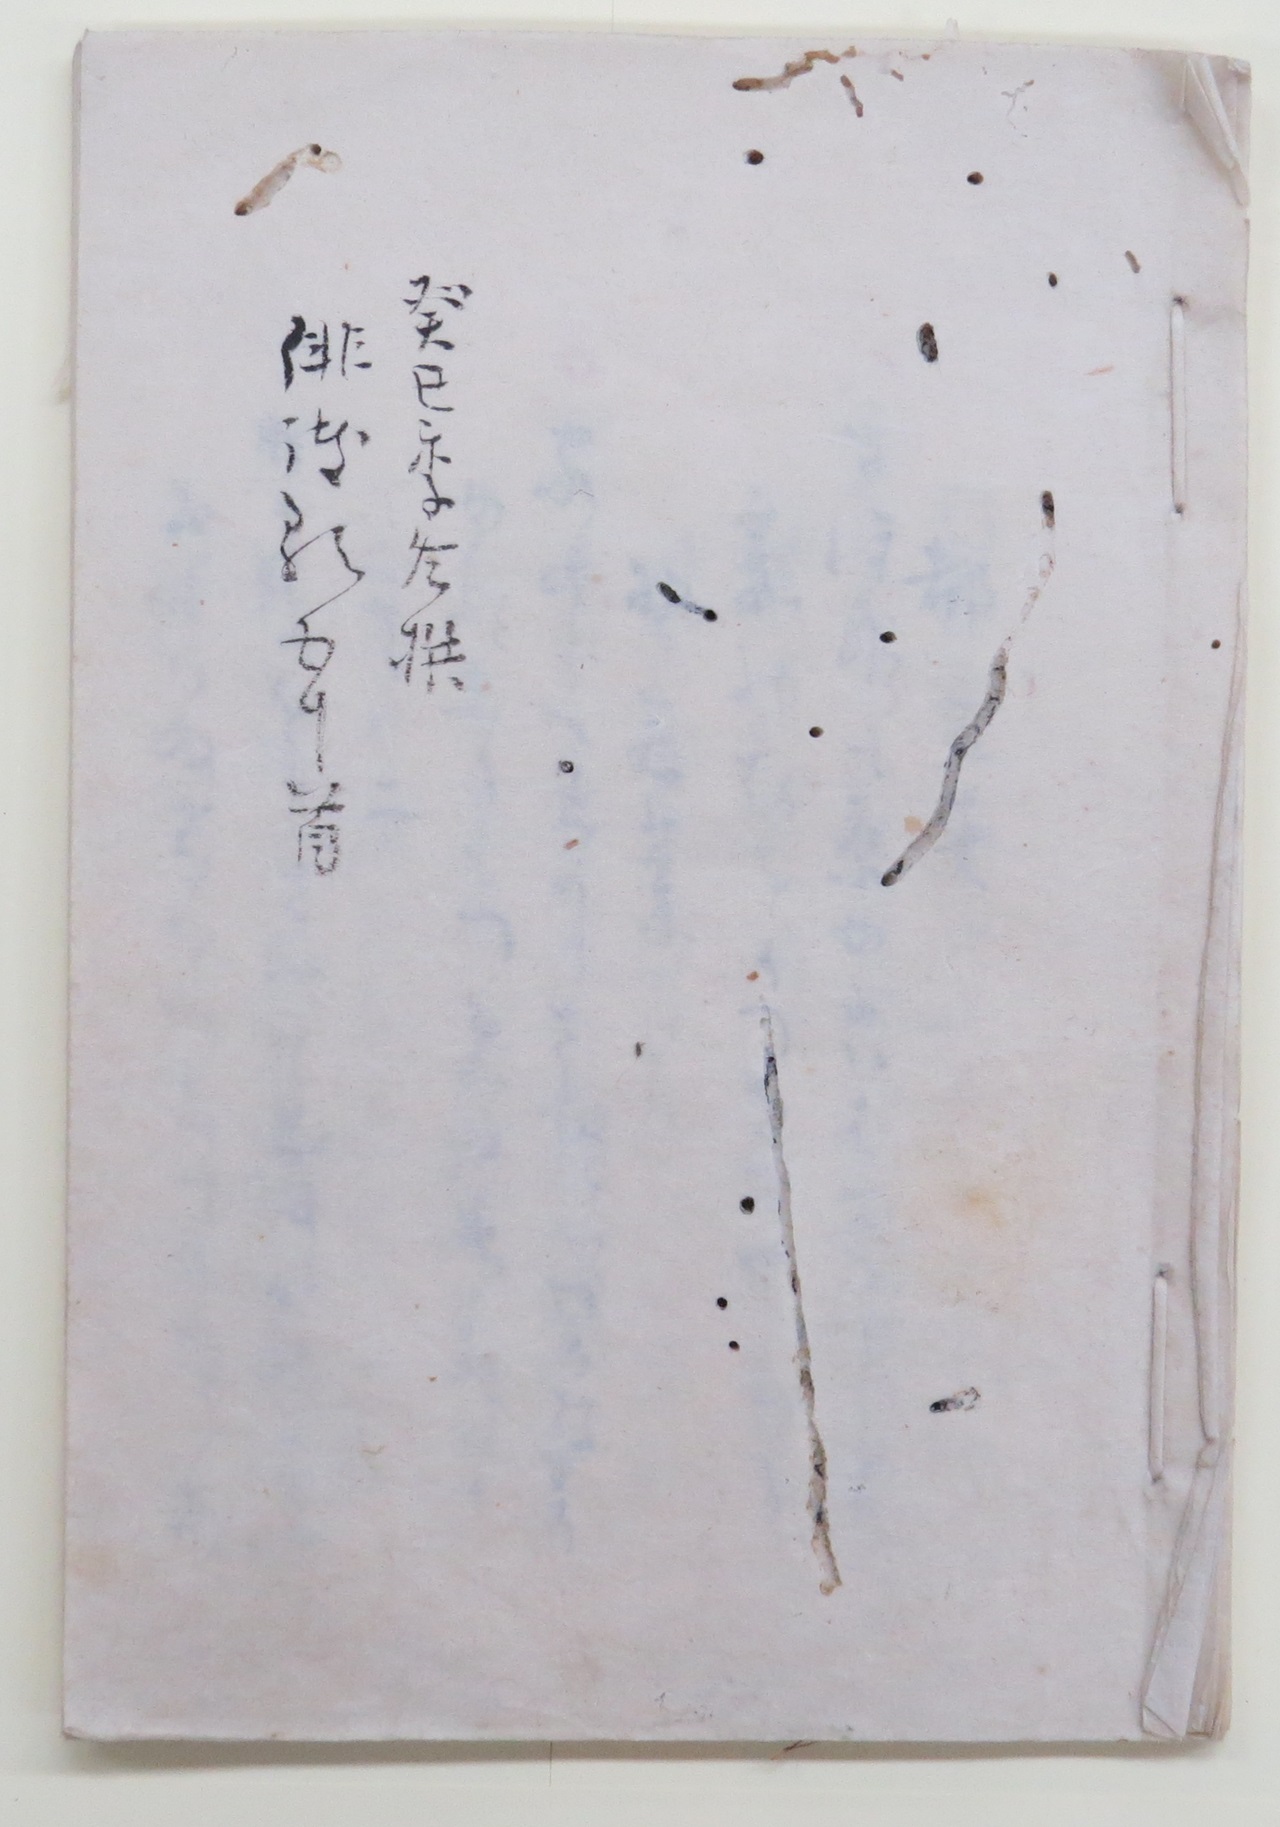 癸巳季冬撰
俳諧歌五十首